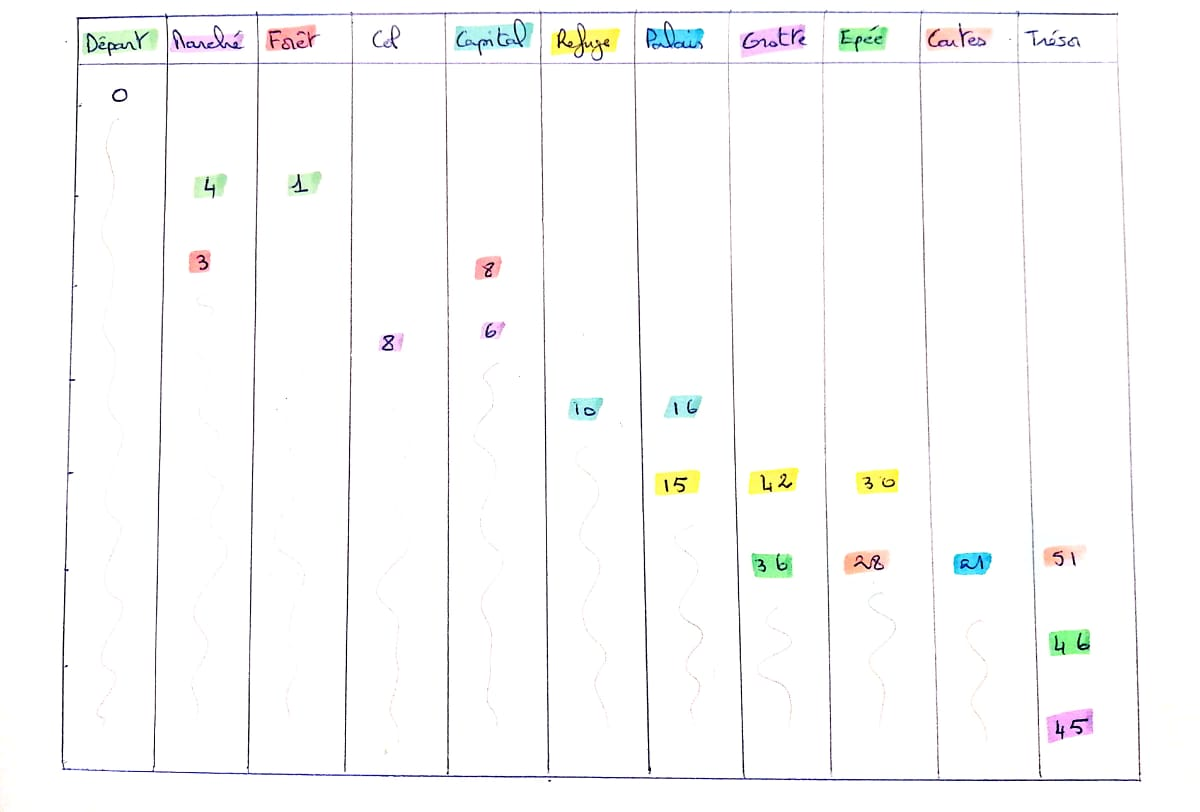 Départ Marché Forêt Col Capital Refuge Palais Grotte Epée Cartes Trésor
0
4 1
3 8
8 6
10 16
15 42 30
36 28 21 51
46
45